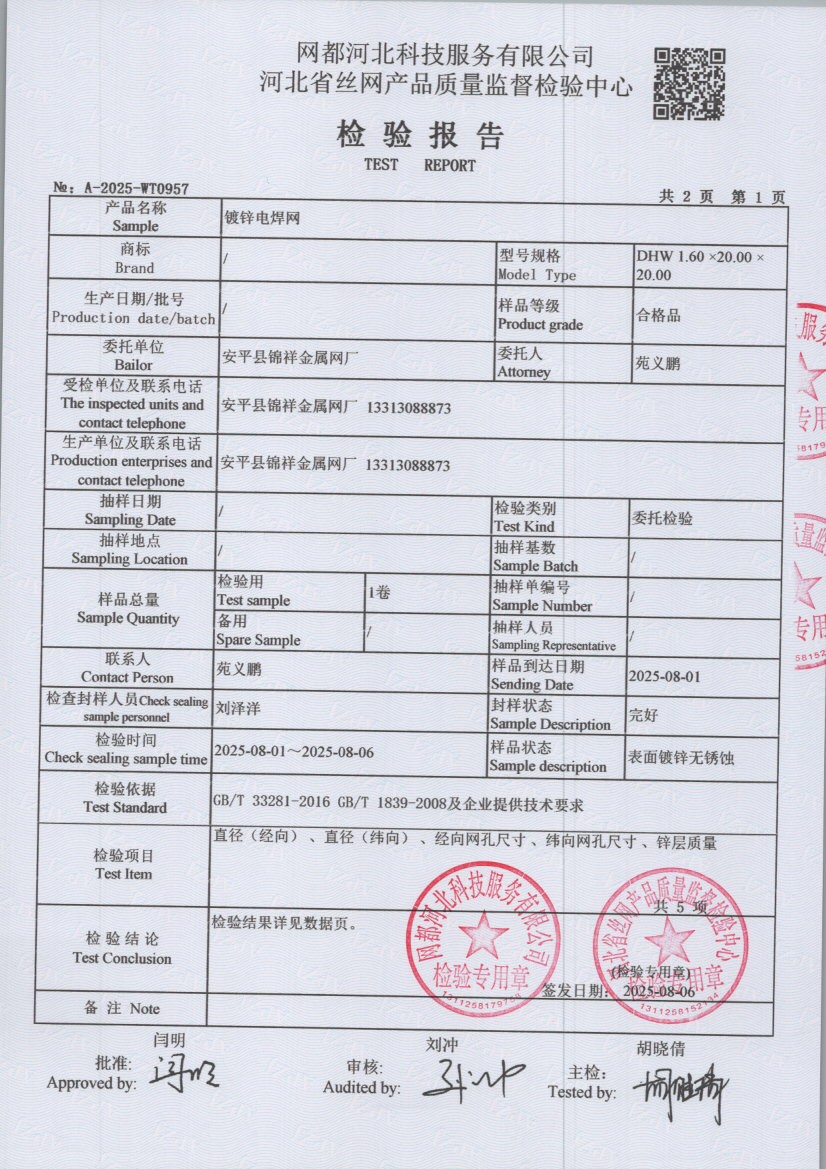 网都河北科技服务有限公司
河北省丝网产品质量监督检验中心
检验报告
TEST REPORT
№: A-2025-WT0957
共 2 页 第 1 页
产品名称
Sample
镀锌电焊网
商标
Brand
/
型号规格
Model Type
DHW 1.60 ×20.00 ×
20.00
生产日期/批号
Production date/batch
/
样品等级
Product grade
合格品
委托单位
Bailor
安平县锦祥金属网厂
委托人
Attorney
苑义鹏
受检单位及联系电话
The inspected units and
contact telephone
安平县锦祥金属网厂 13313088873
生产单位及联系电话
Production enterprises and
contact telephone
安平县锦祥金属网厂 13313088873
抽样日期
Sampling Date
/
检验类别
Test Kind
委托检验
抽样地点
Sampling Location
/
抽样基数
Sample Batch
/
样品总量
Sample Quantity
检验用
Test sample
1卷
抽样单编号
Sample Number
/
备用
Spare Sample
/
抽样人员
Sampling Representative
/
联系人
Contact Person
苑义鹏
样品到达日期
Sending Date
2025-08-01
检查封样人员Check sealing
sample personnel
刘泽洋
封样状态
Sample Description
完好
检验时间
Check sealing sample time
2025-08-01～2025-08-06
样品状态
Sample description
表面镀锌无锈蚀
检验依据
Test Standard
GB/T 33281-2016 GB/T 1839-2008及企业提供技术要求
检验项目
Test Item
直径（经向）、直径（纬向）、经向网孔尺寸、纬向网孔尺寸、锌层质量
共 5 项
检验结论
Test Conclusion
检验结果详见数据页。
(检验专用章)
签发日期: 2025-08-06
网都河北科技服务有限公司
检验专用章
河北省丝网产品质量监督检验中心
检验专用章
备注 Note
闫明
批准:
Approved by:
闫明
刘冲
审核:
Audited by:
刘冲
胡晓倩
主检:
Tested by:
胡晓倩